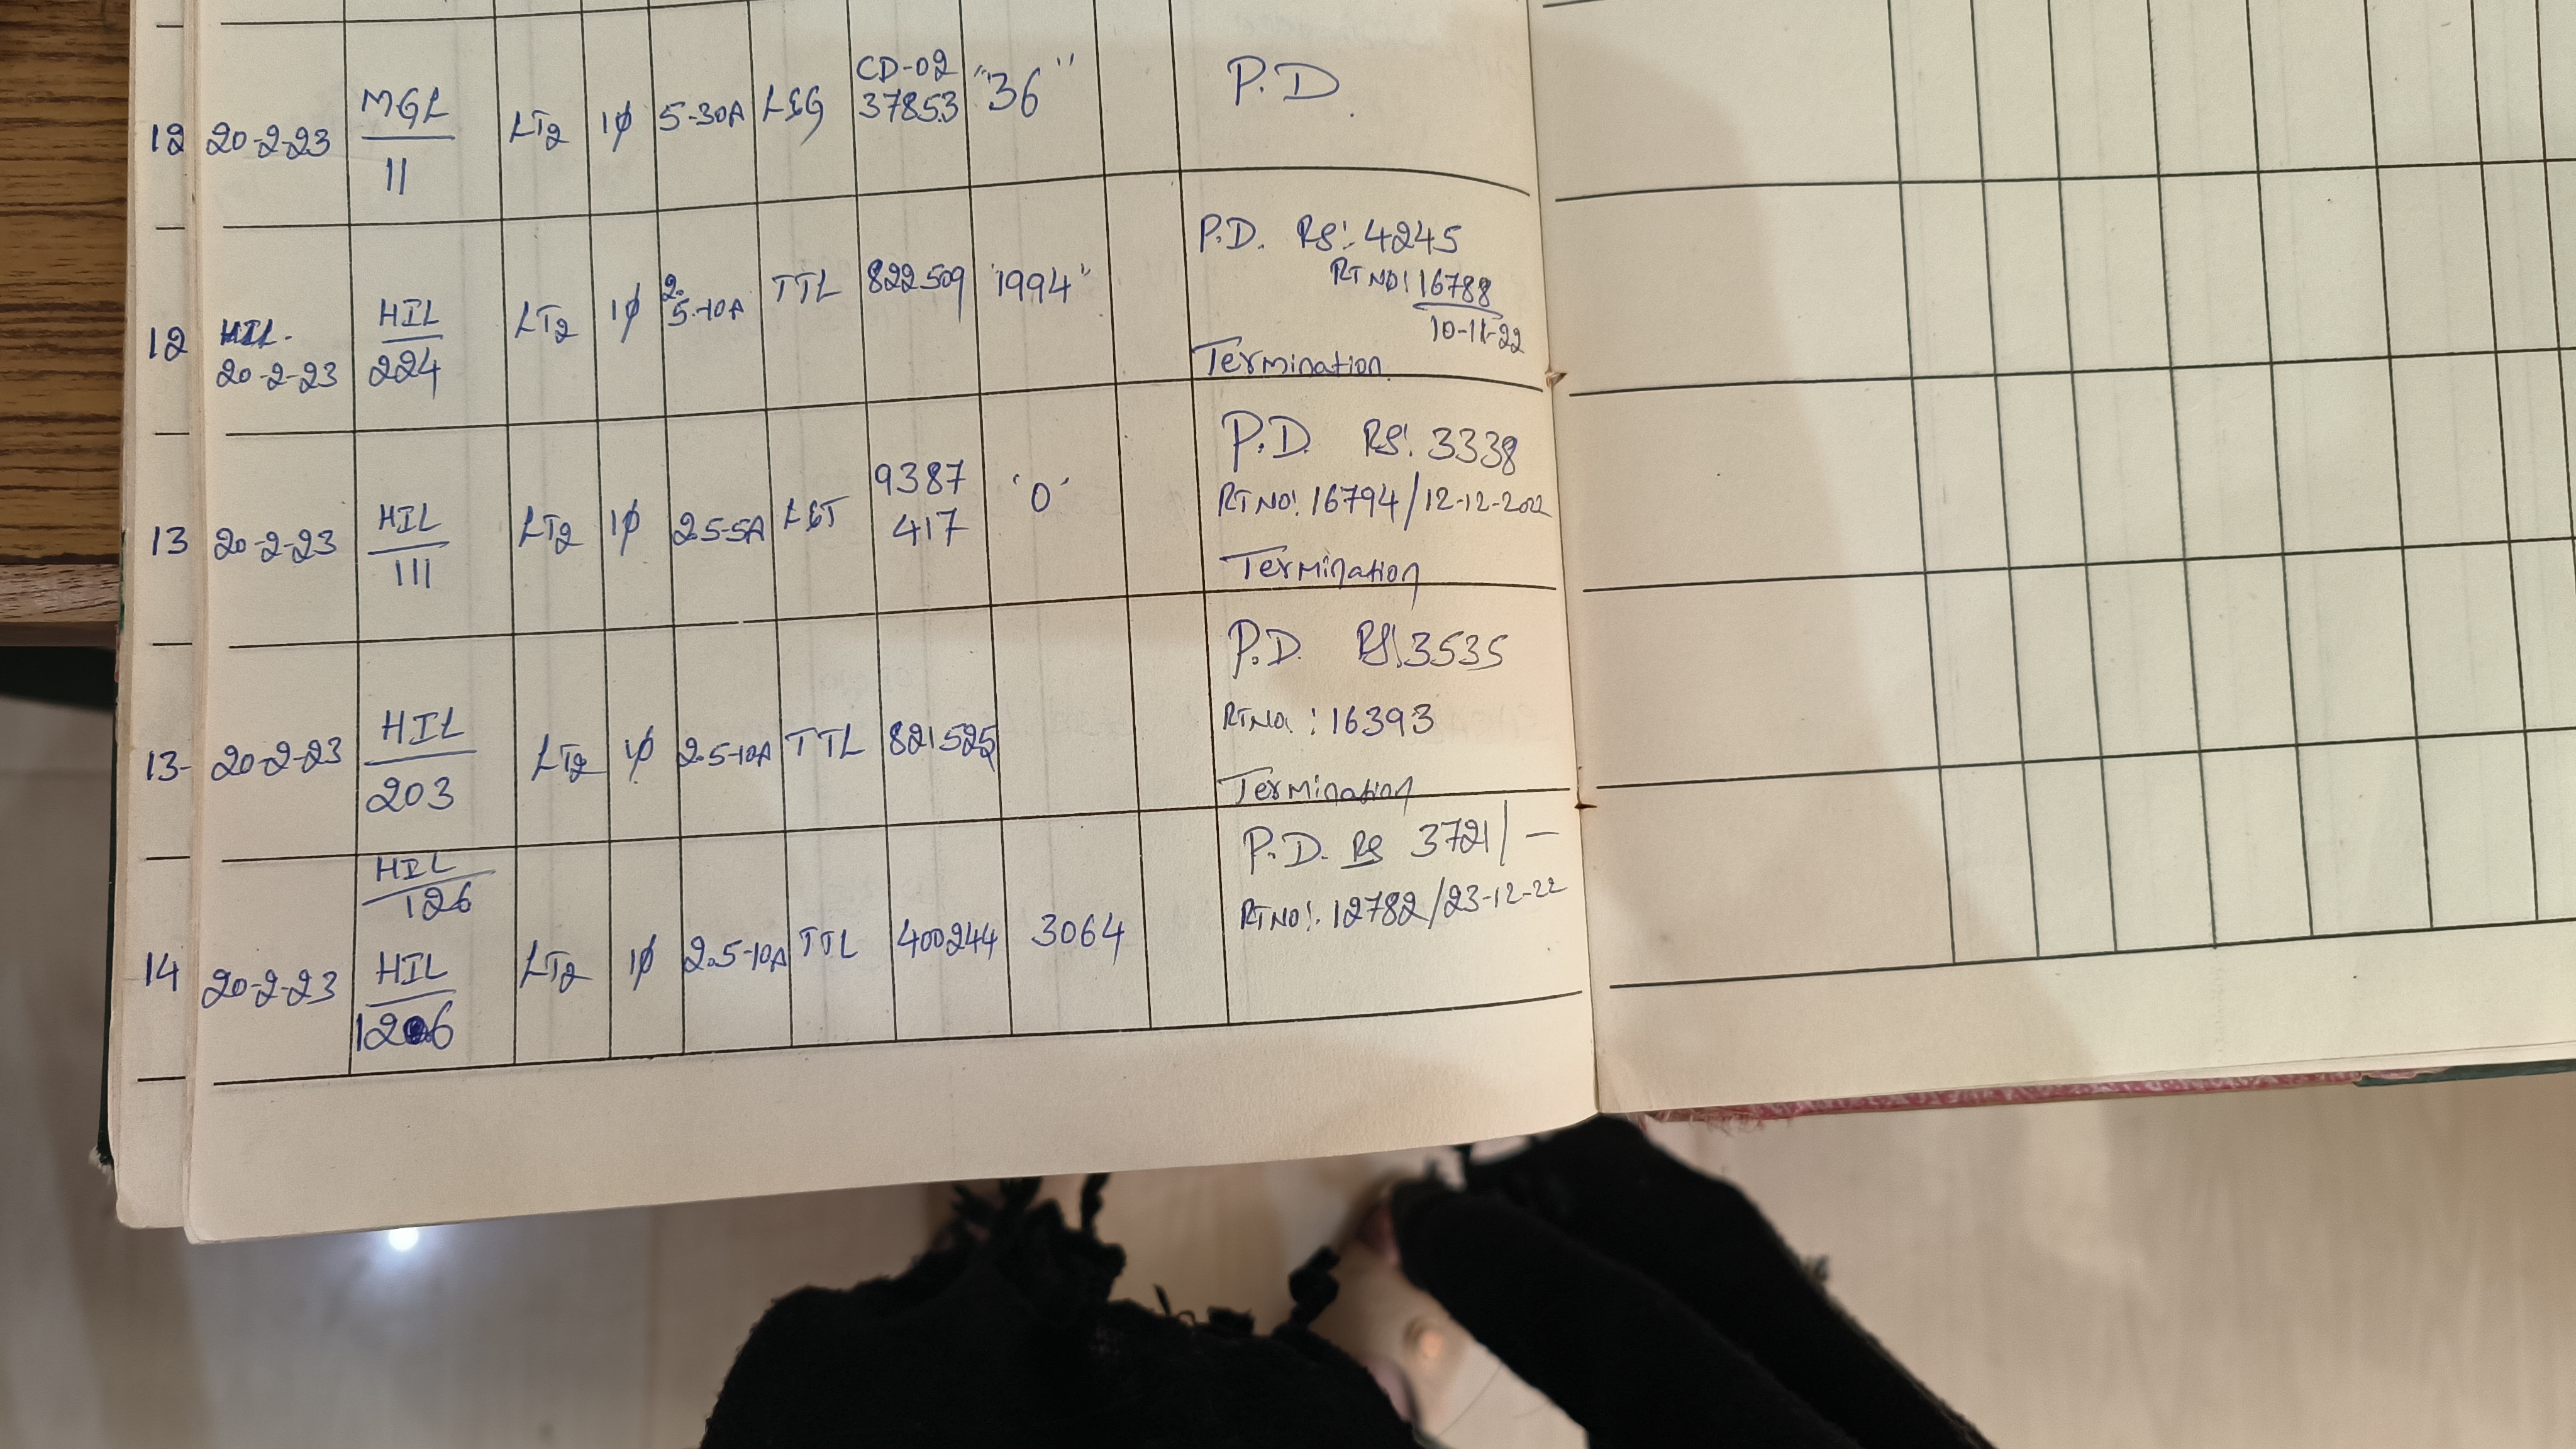 12 20-2-23 MGL/11 LT2 1φ 5-30A L&G CD-02 37853 "36" P.D.
12 HIL. 20-2-23 HIL/224 LT2 1φ 2.5-10A TTL 822509 "1994" P.D. RS: 4245
RTNO: 16788
10-11-22
Termination
13 20-2-23 HIL/111 LT2 1φ 2.5-5A L&T 9387 417 '0' P.D. RS: 3338
RTNO: 16794/12-12-2022
Termination
13- 20-2-23 HIL/203 LT2 1φ 2.5-10A TTL 821525 P.D. RS: 3535
RTNo: 16393
Termination
HIL/126
14 20-2-23 HIL/126 LT2 1φ 2.5-10A TTL 400244 3064 P.D. RS 3721/-
RTNO: 12782/23-12-22